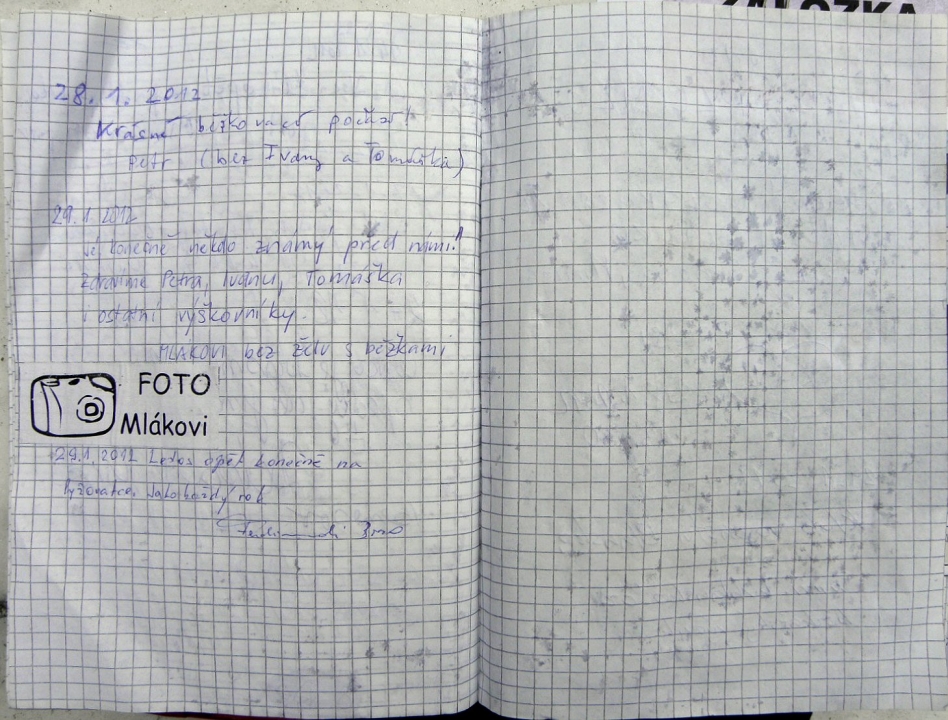 ZALOŽKA
28.1.2012
Krásné běžkovací počasí!
Petr (bez Ivany a Tomáška)
29.1.2012
Je konečně někdo známý před námi!
Zdravíme Petra, Ivanu, Tomáška
i ostatní výškovníky.
MLÁKOVI bez želv s běžkami
FOTO
Mlákovi
29.1.2012 Letos opět konečně na
lyžovačce. Jako každý rok
Brno